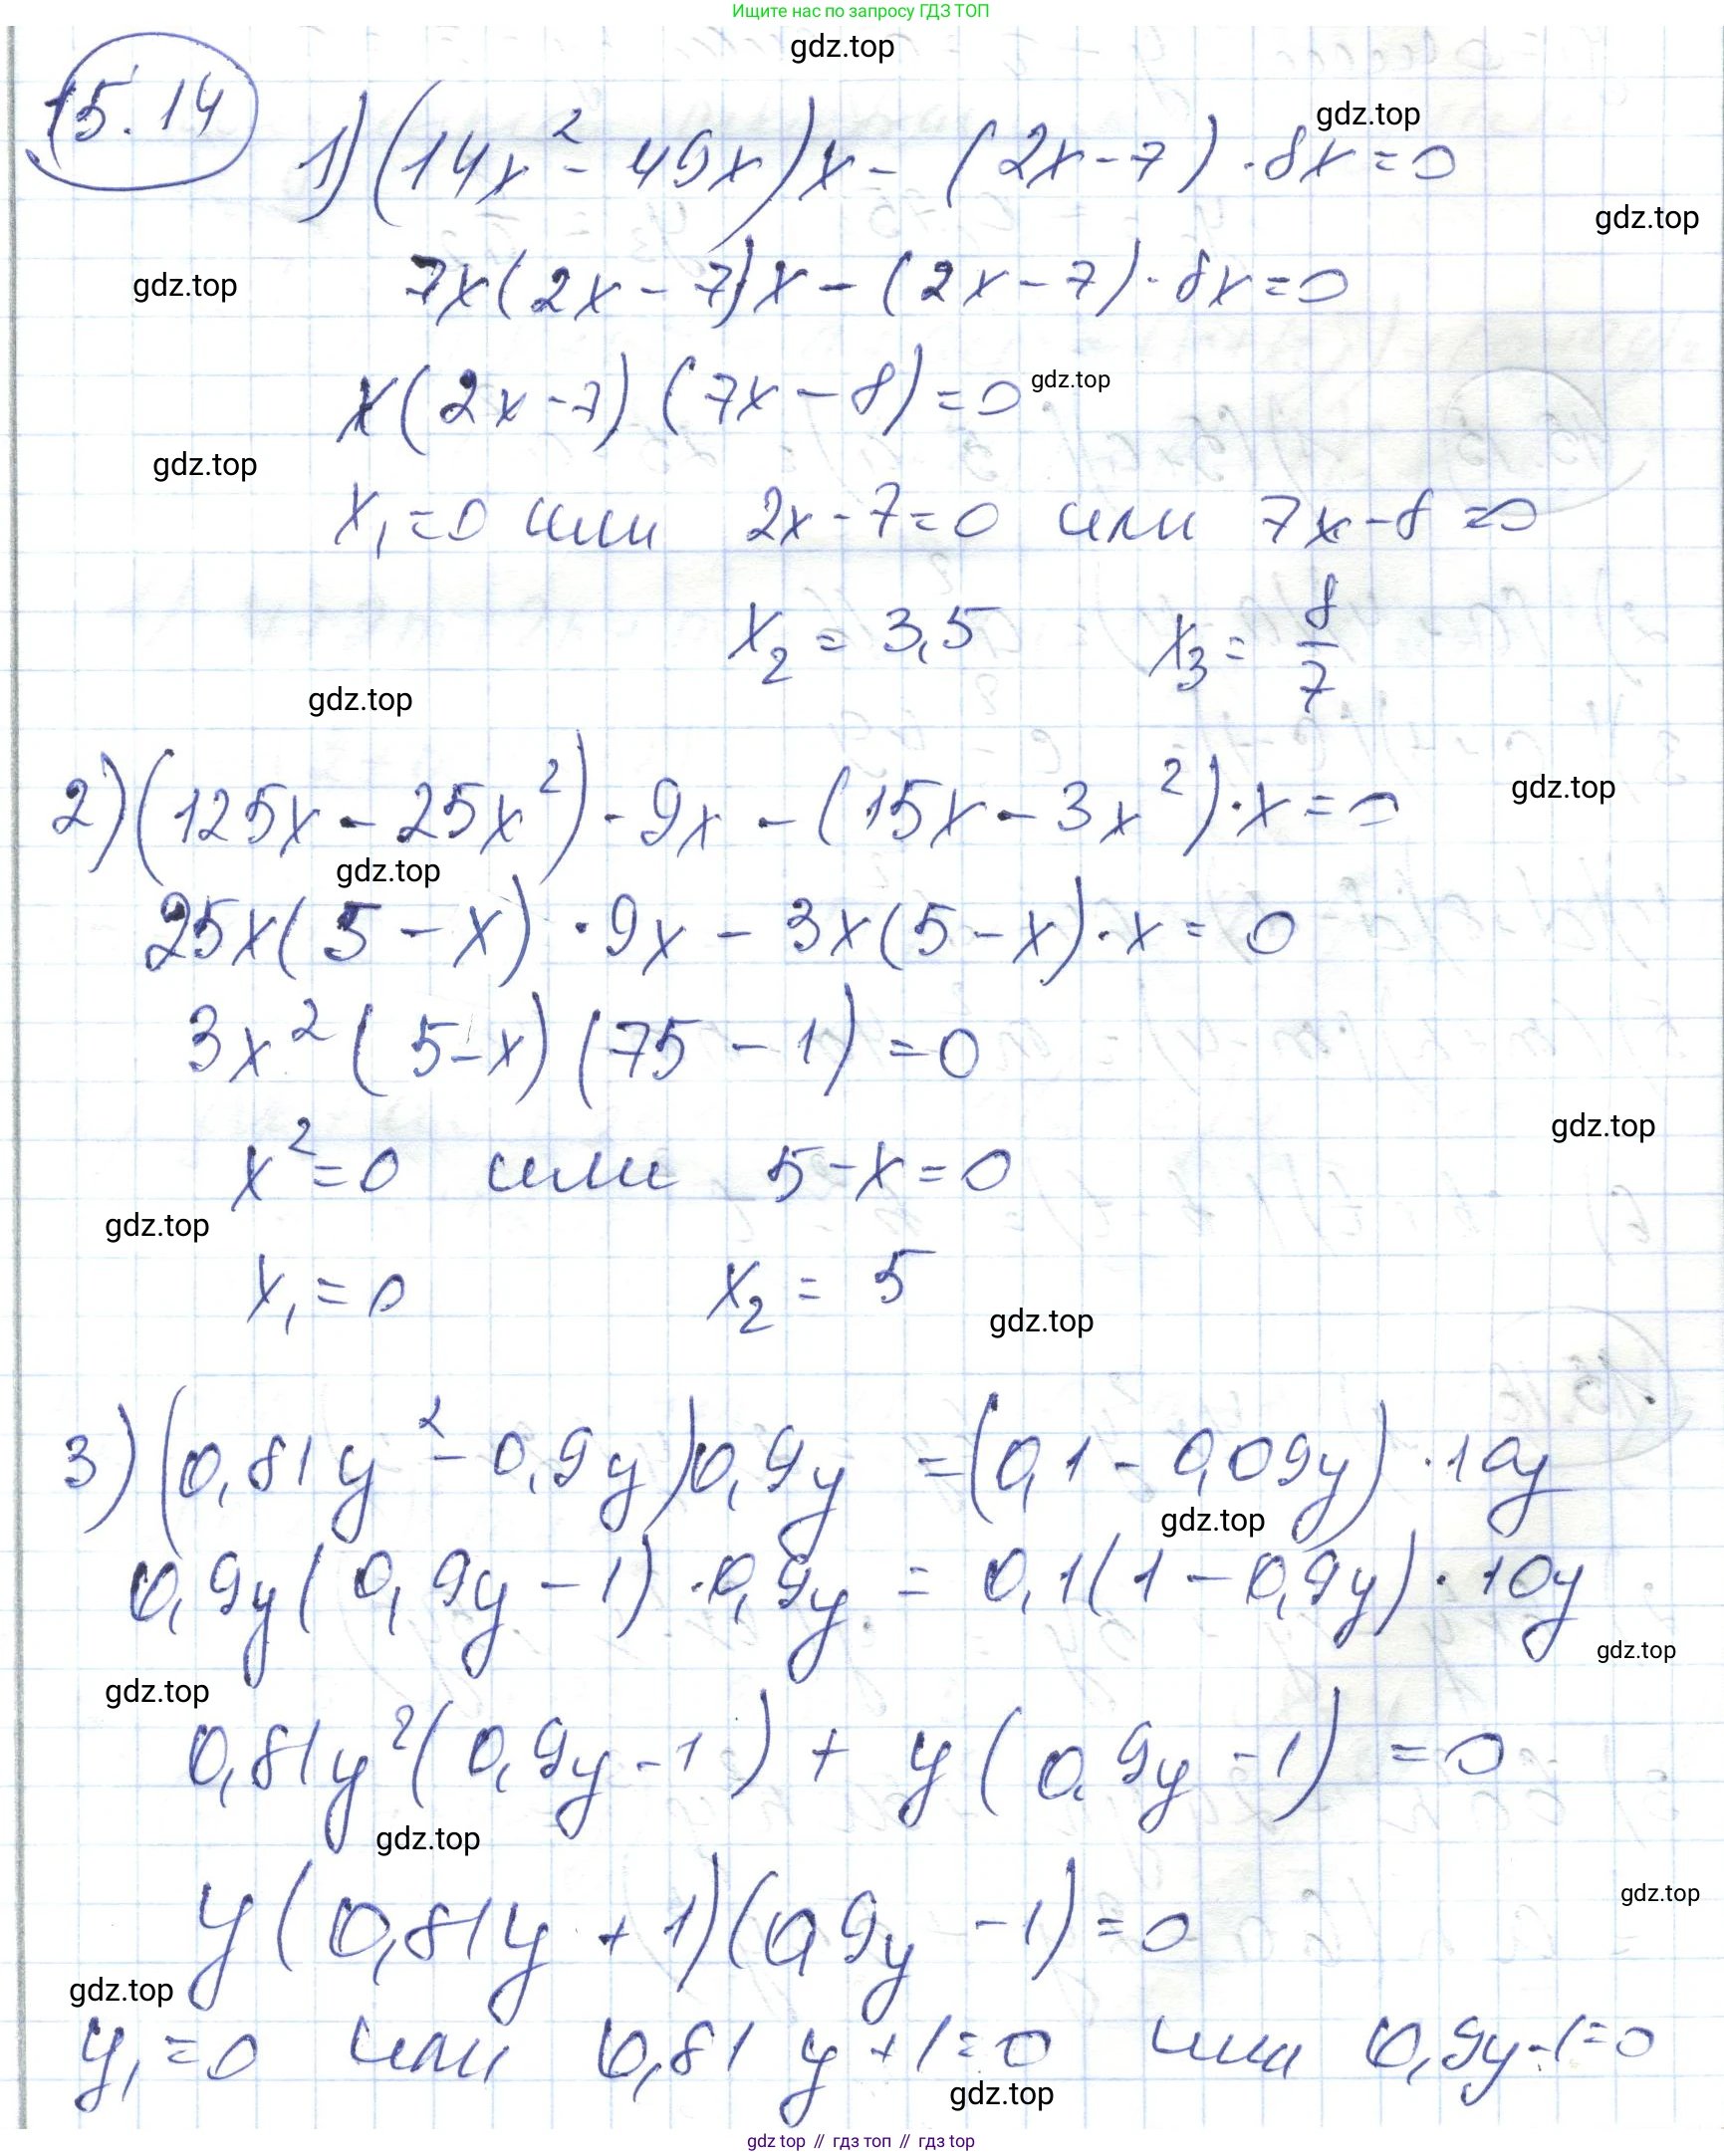 Ищите нас по запросу ГДЗ ТОП
gdz.top
15.14
1) (14x² - 49x)x - (2x - 7) · 8x = 0
gdz.top
gdz.top
7x(2x - 7)x - (2x - 7) · 8x = 0
gdz.top
x(2x - 7)(7x - 8) = 0
gdz.top
gdz.top
x₁ = 0 или 2x - 7 = 0 или 7x - 8 = 0
x₂ = 3,5 x₃ = 8/7
gdz.top
2) (125x - 25x²) · 9x - (15x - 3x²) · x = 0
gdz.top
gdz.top
25x(5 - x) · 9x - 3x(5 - x) · x = 0
3x²(5 - x)(75 - 1) = 0
gdz.top
x² = 0 или 5 - x = 0
gdz.top
x₁ = 0 x₂ = 5
gdz.top
3) (0,81y² - 0,9y)0,9y = (0,1 - 0,09y) · 10y
gdz.top
0,9y(0,9y - 1) · 0,9y = 0,1(1 - 0,9y) · 10y
gdz.top
gdz.top
0,81y²(0,9y - 1) + y(0,9y - 1) = 0
gdz.top
gdz.top
y(0,81y + 1)(0,9y - 1) = 0
gdz.top
y₁ = 0 или 0,81y + 1 = 0 или 0,9y - 1 = 0
gdz.top
gdz top // гдз топ // гдз top